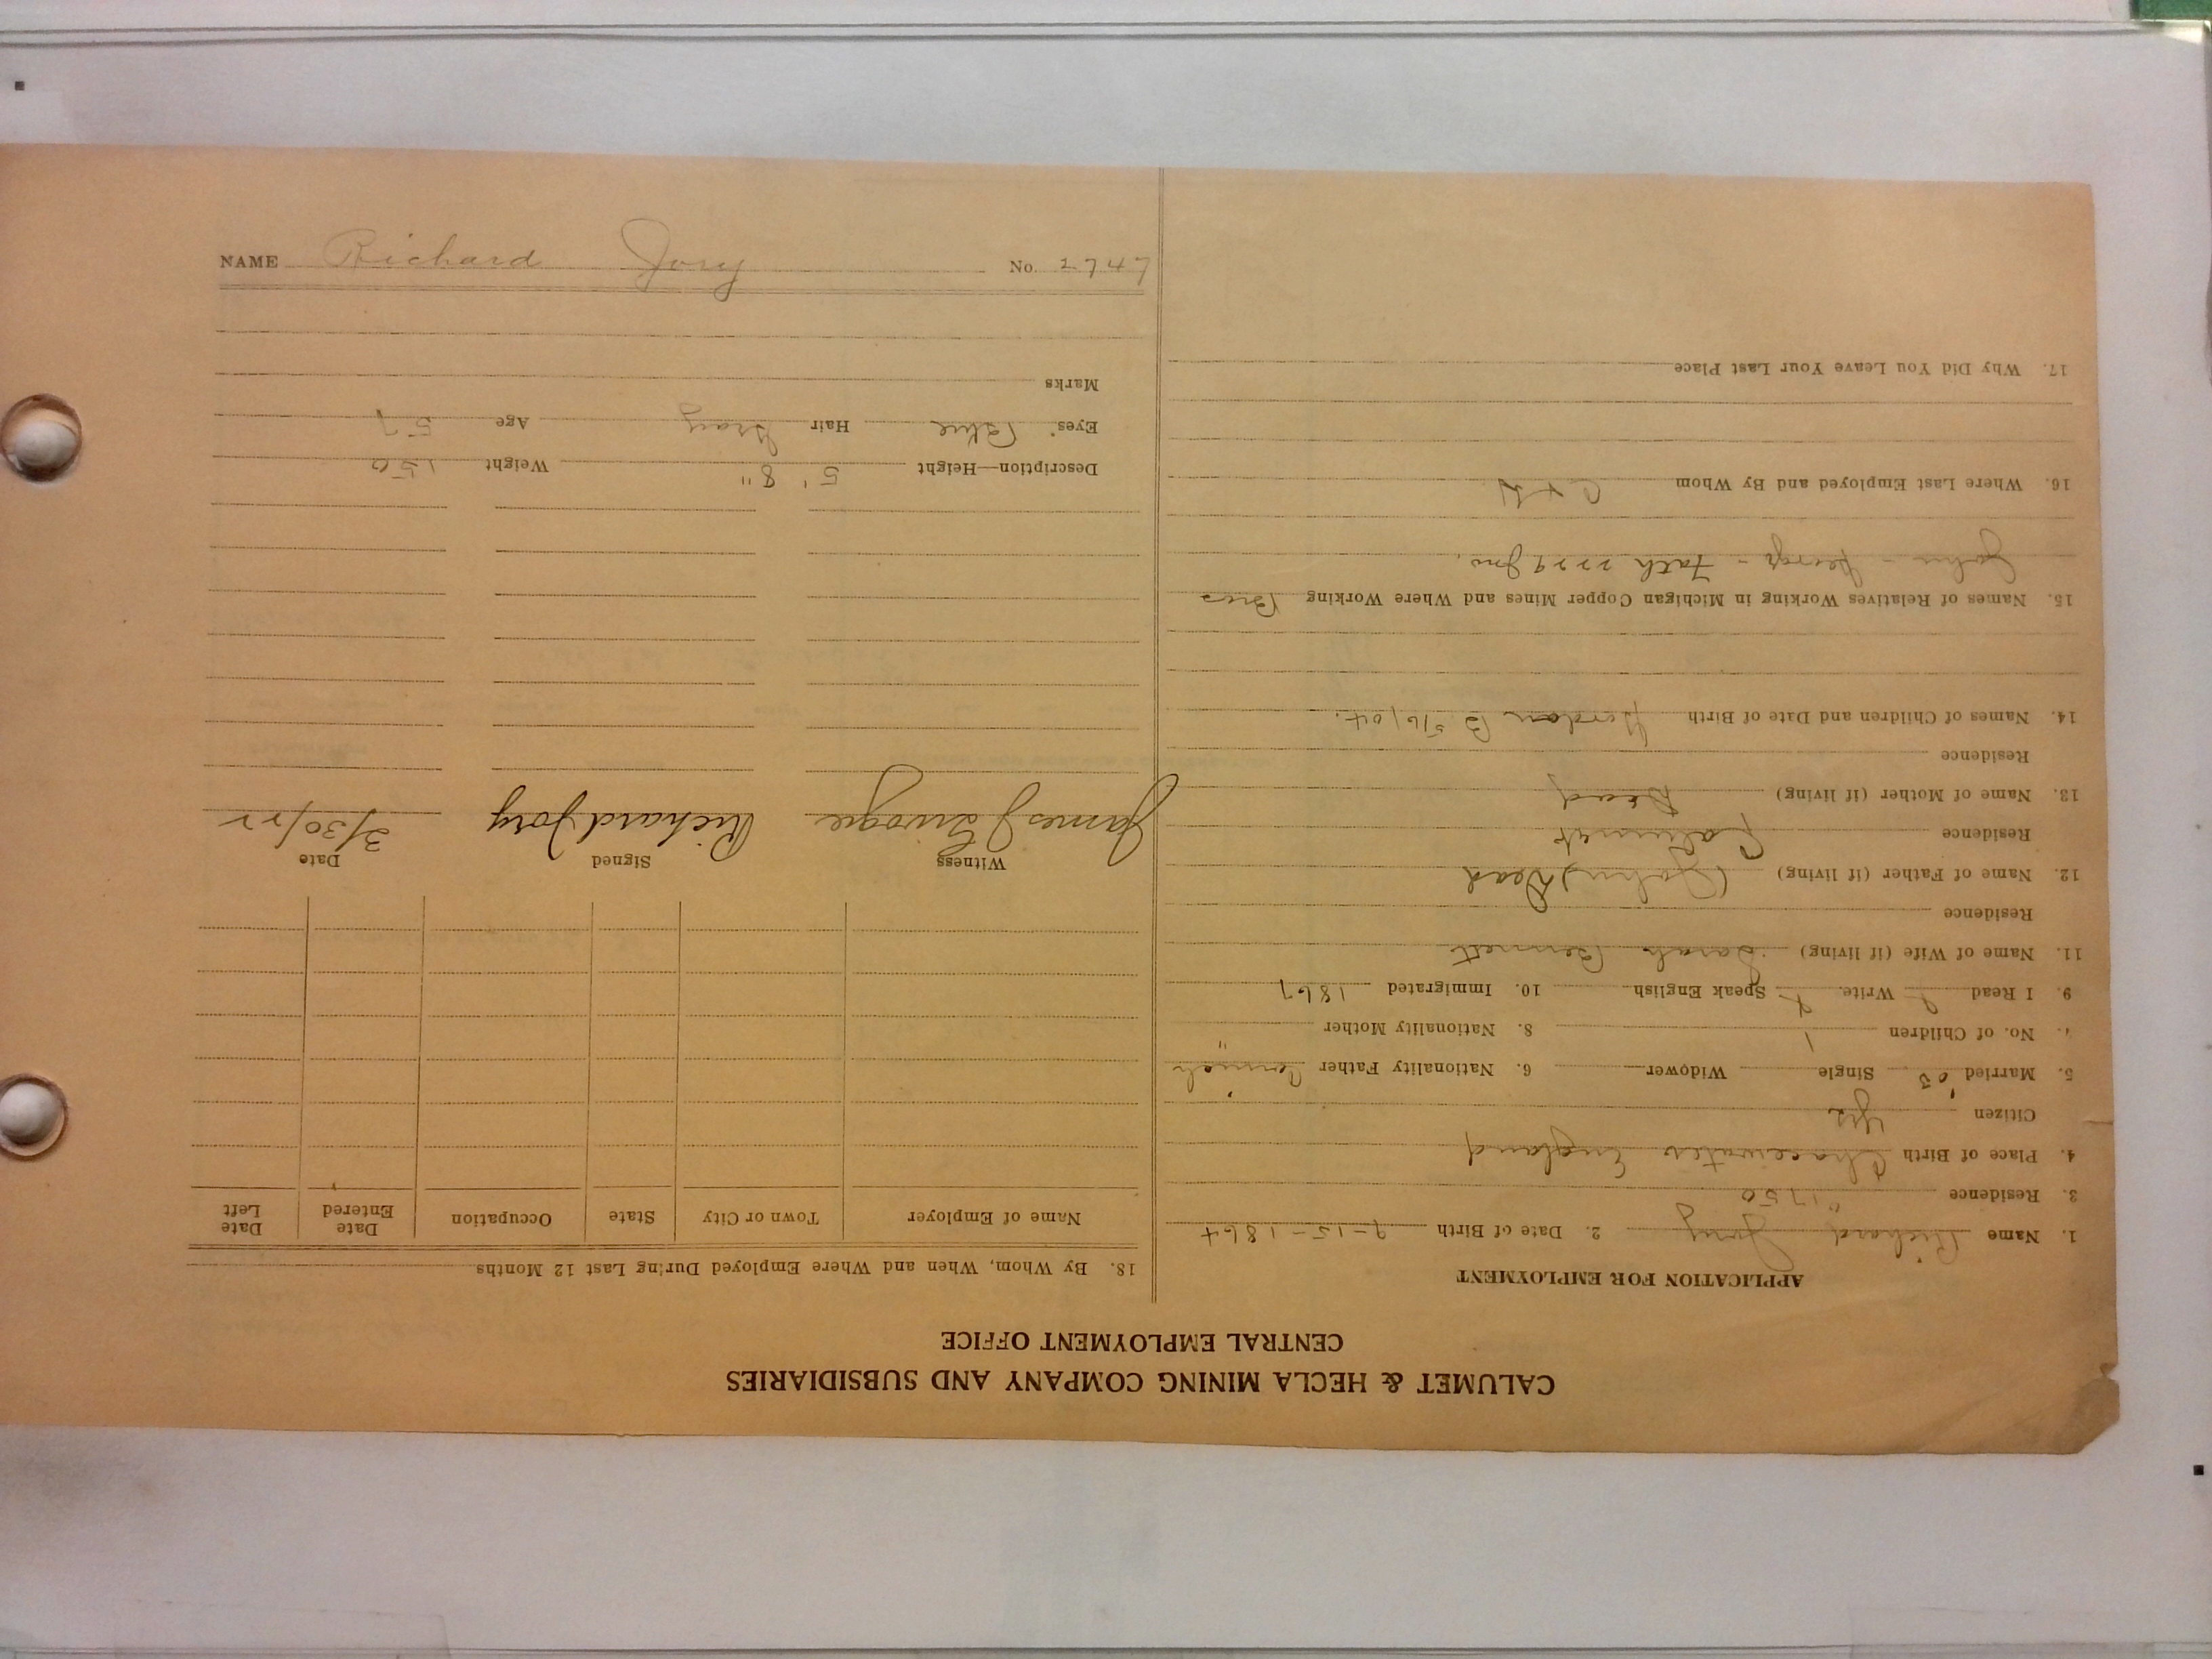 CALUMET & HECLA MINING COMPANY AND SUBSIDIARIES
CENTRAL EMPLOYMENT OFFICE
APPLICATION FOR EMPLOYMENT
1. Name Richard Jory 2. Date of Birth 9-15-1864
3. Residence 1750
4. Place of Birth Chacewater England
Citizen Yes
5. Married '03 Single Widower 6. Nationality Father Cornish
No. of Children 1 8. Nationality Mother "
9. I Read Write Speak English 10. Immigrated 1867
11. Name of Wife (if living) Sarah Bennett
Residence
12. Name of Father (if living) (John) Dead
Residence Calumet
13. Name of Mother (if living) Dead
Residence
14. Names of Children and Date of Birth Gordon B 5/6/04.
15. Names of Relatives Working in Michigan Copper Mines and Where Working Bros
John - George -
16. Where Last Employed and By Whom C & H
17. Why Did You Leave Your Last Place
18. By Whom, When and Where Employed During Last 12 Months
Name of Employer Town or City State Occupation Date Entered Date Left
Witness Signed Date
James J Richard Jory 3/30/22
Description—Height 5' 8" Weight 150
Eyes Blue Hair Gray Age 57
Marks
NAME Richard Jory No. 2747